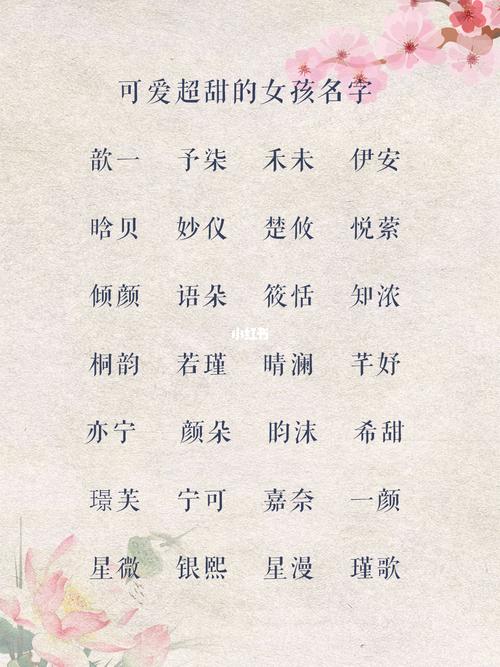 可爱超甜的女孩名字
歆一 予柒 禾未 伊安
晗贝 妙仪 楚攸 悦萦
倾颜 语朵 筱恬 知浓
小红书
桐韵 若瑾 晴澜 芊妤
亦宁 颜朵 昀沫 希甜
璟芙 宁可 嘉奈 一颜
星微 银熙 星漫 瑾歌